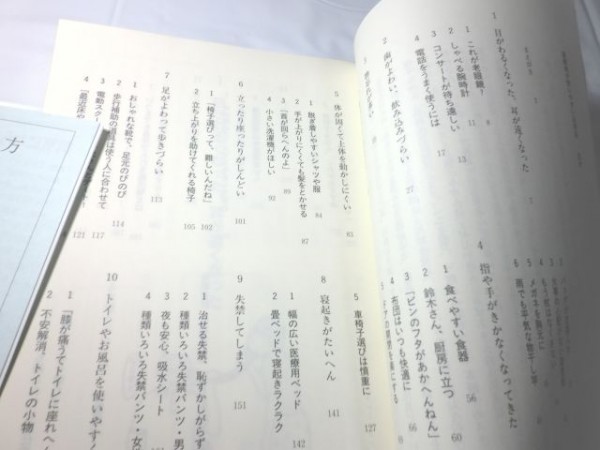 1 目がわるくなった、耳が遠くなった
1 これが老眼鏡?
2 しゃべる腕時計 11
3 コンサートが待ち遠しい 13
4 電話をうまく使うには 17
2 歯がよわい、飲み込みづらい 27
4 指や手がきかなくなってきた
1 食べやすい食器 56
2 鈴木さん、厨房に立つ 60
3 「ビンのフタがあかへんねん」
4 布団はいつも快適に
5 体が固くて上体を動かしにくい 83
1 脱ぎ着しやすいシャツや服 84
2 手が上がりにくくても髪をとかせる 87
3 「首が回らへんのよ」 89
4 小さい洗濯機がほしい 92
6 立ったり座ったりがしんどい 101
1 「椅子選びって、難しいんだね」 102
2 立ち上がりを助けてくれる椅子 105
7 足がよわって歩きづらい 113
1 おしゃれな靴で、足元のびのび 114
2 歩行補助の道具は使う人に合わせて 117
3 電動スク 121
4 「最近床や
5 車椅子選びは慎重に 127
8 寝起きがたいへん 141
1 幅の広い医療用ベッド 142
2 畳ベッドで寝起きラクラク
9 失禁してしまう 151
1 治せる失禁、恥ずかしがらず
2 種類いろいろ失禁パンツ・男
3 夜も安心、吸水シート
4 種類いろいろ失禁パンツ・女
10 トイレやお風呂を使いやすく
1 「膝が痛うてトイレに座れへん
2 不安解消、トイレの小物
方